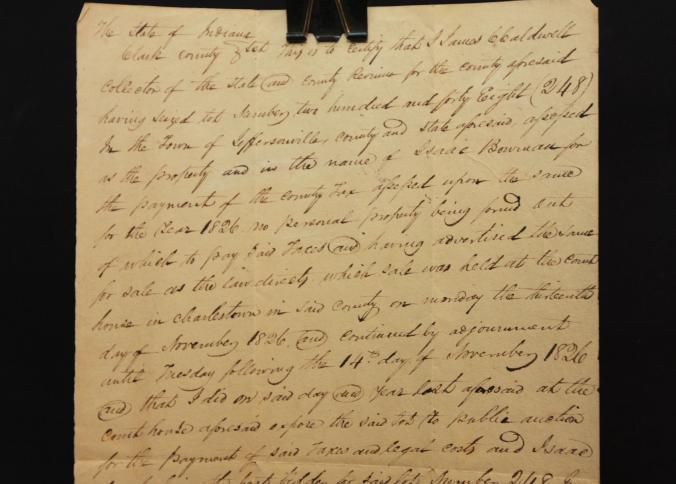 The State of Indiana
Clark county Sct. This is to certify that I James C Caldwell
collector of the State and county Revenue for the county aforesaid
having seized lot Number two hundred and forty Eight (248)
in the Town of Jeffersonville, county and State aforesaid, assessed
as the property and in the name of Isaac Bowman for
the payment of the county Tax assessed upon the same
for the year 1826. no personal property being found out
of which to pay said Taxes and having advertised the same
for sale as the law directs, which sale was held at the court
house in charlestown in said county on monday the thirteenth
day of November 1826. and continued by adjournment
until Tuesday following the 14th day of November 1826
and that I did on said day and year last aforesaid at the
court house aforesaid expose the said lot to public auction
for the payment of said Taxes and legal costs and Isaac
the best bidder Number 248